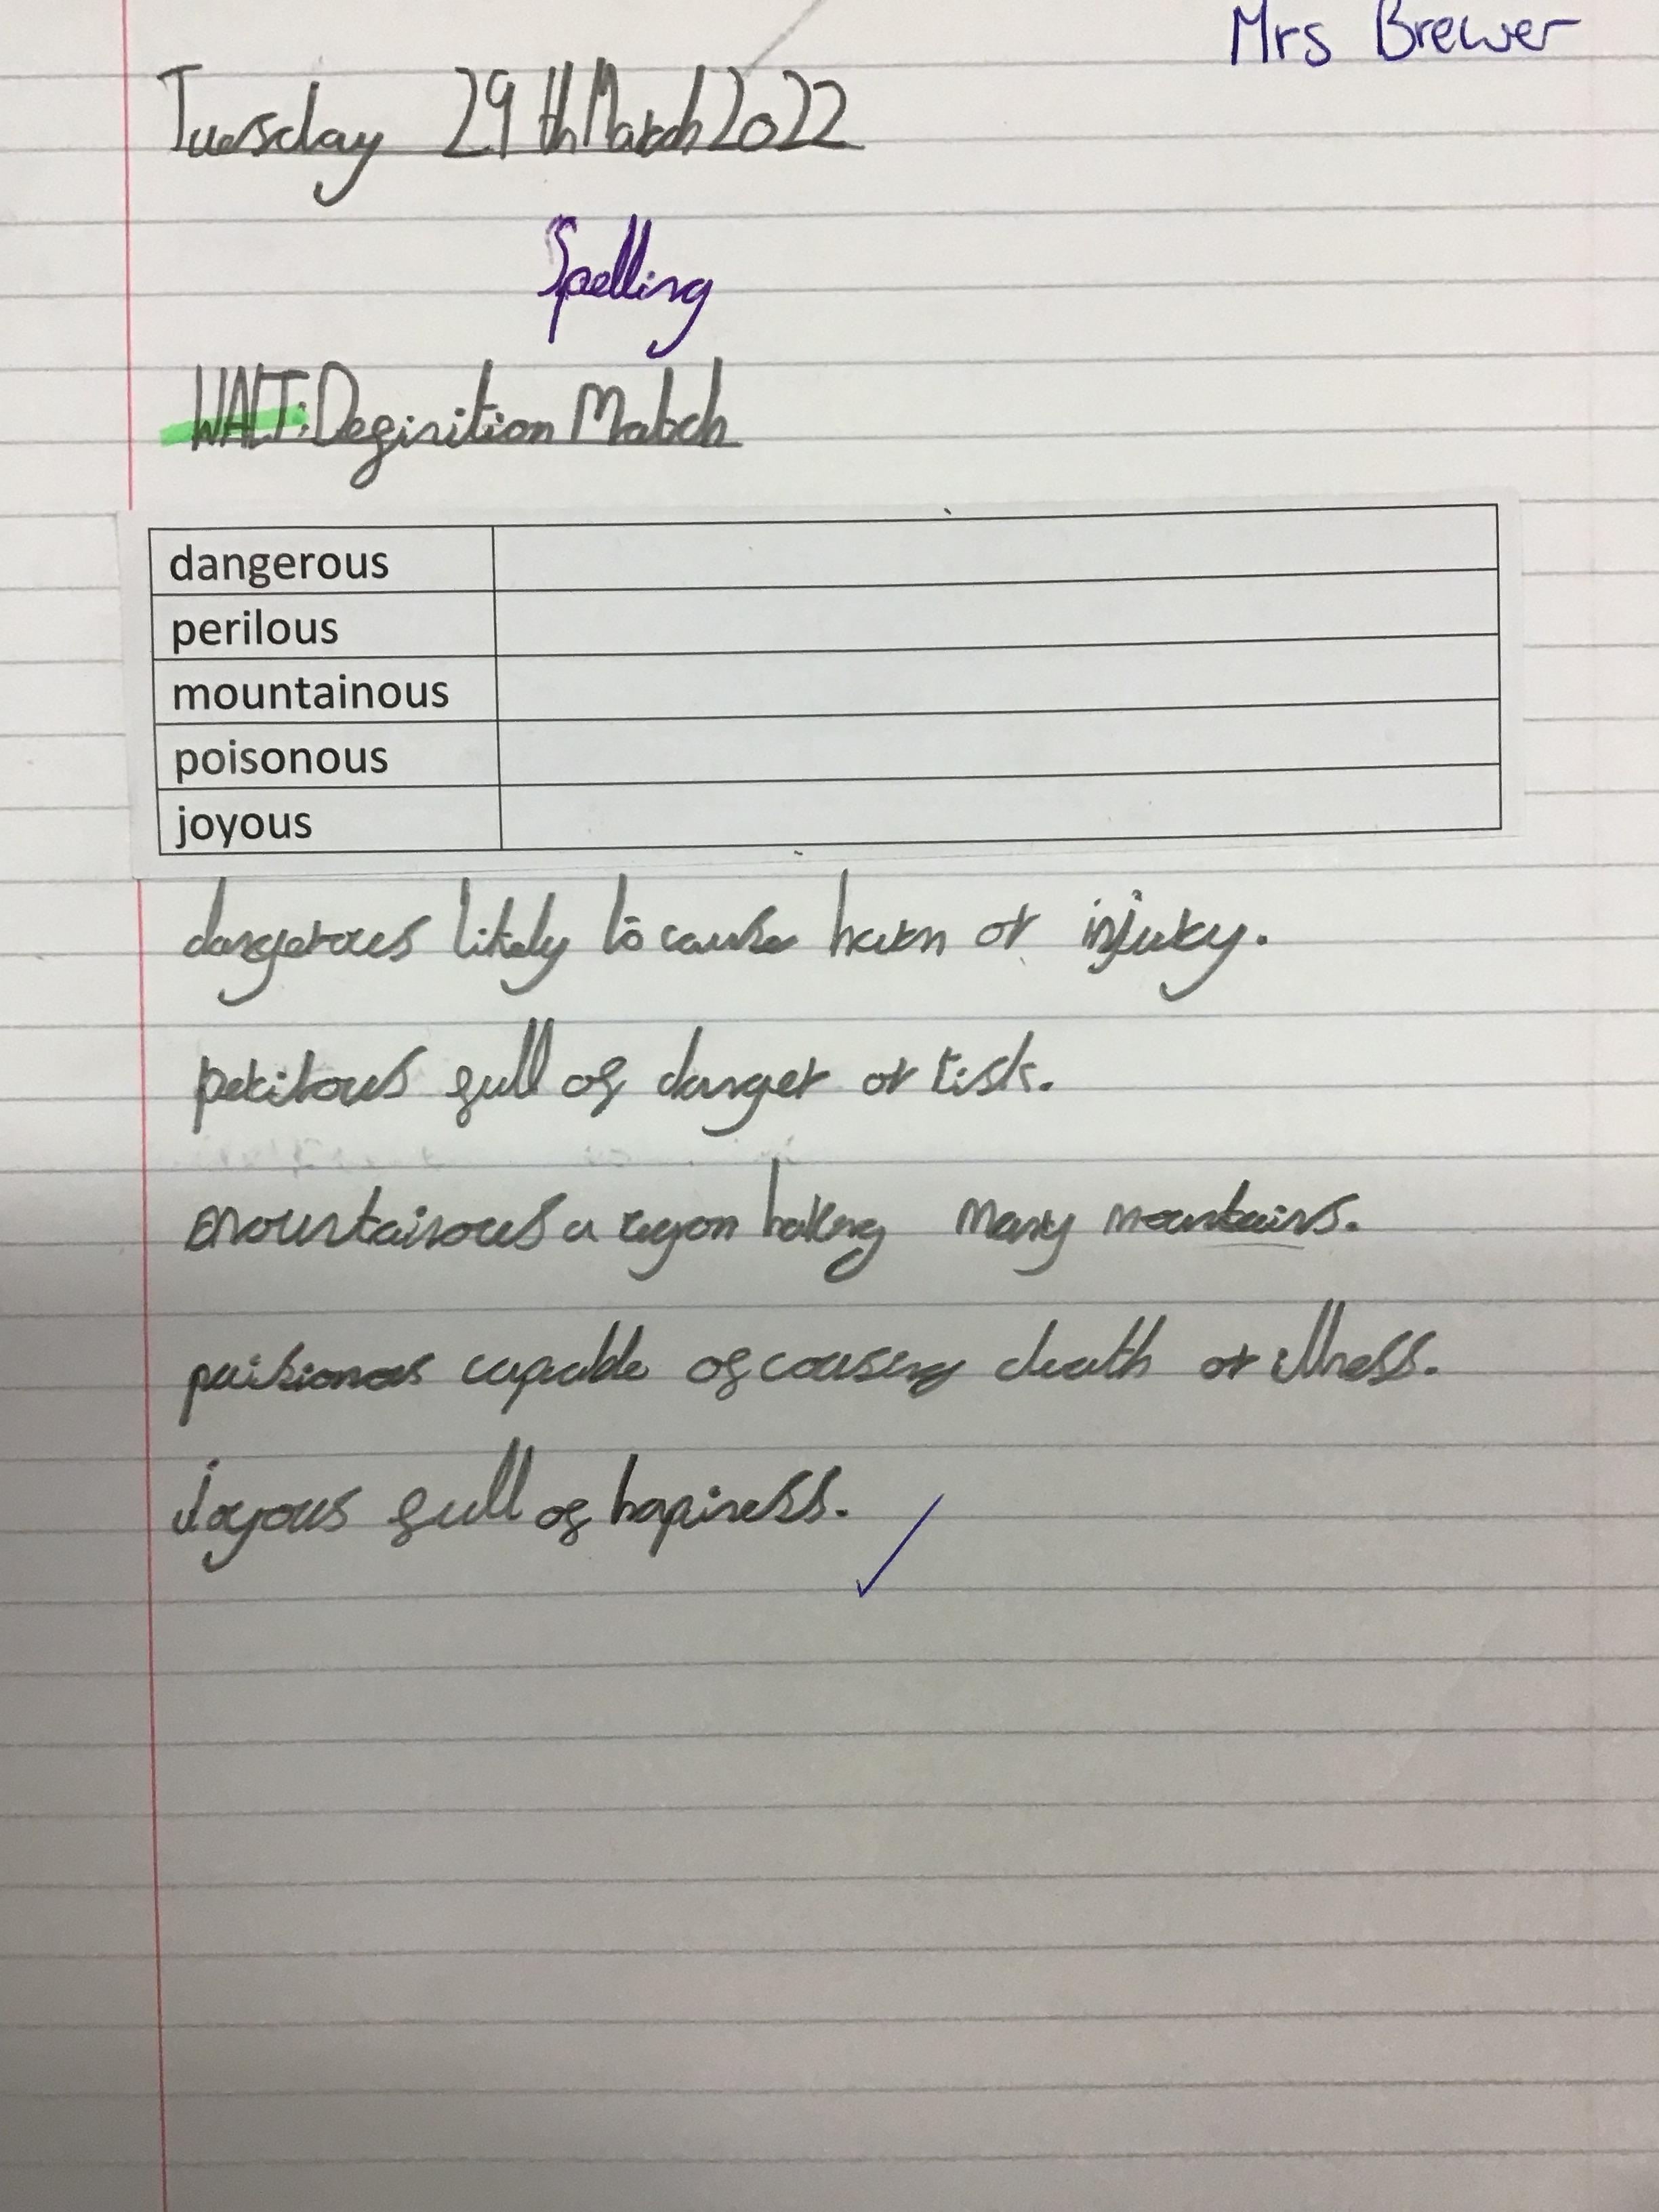 Mrs Brewer
Tuesday 29th March 2022
Spelling
WALT: Definition Match
dangerous
perilous
mountainous
poisonous
joyous
dangerous likely to cause harm or injury.
perilous full of danger or risk.
mountainous a region having many mountains.
poisionous capable of causing death or illness.
Joyous full of hapiness.